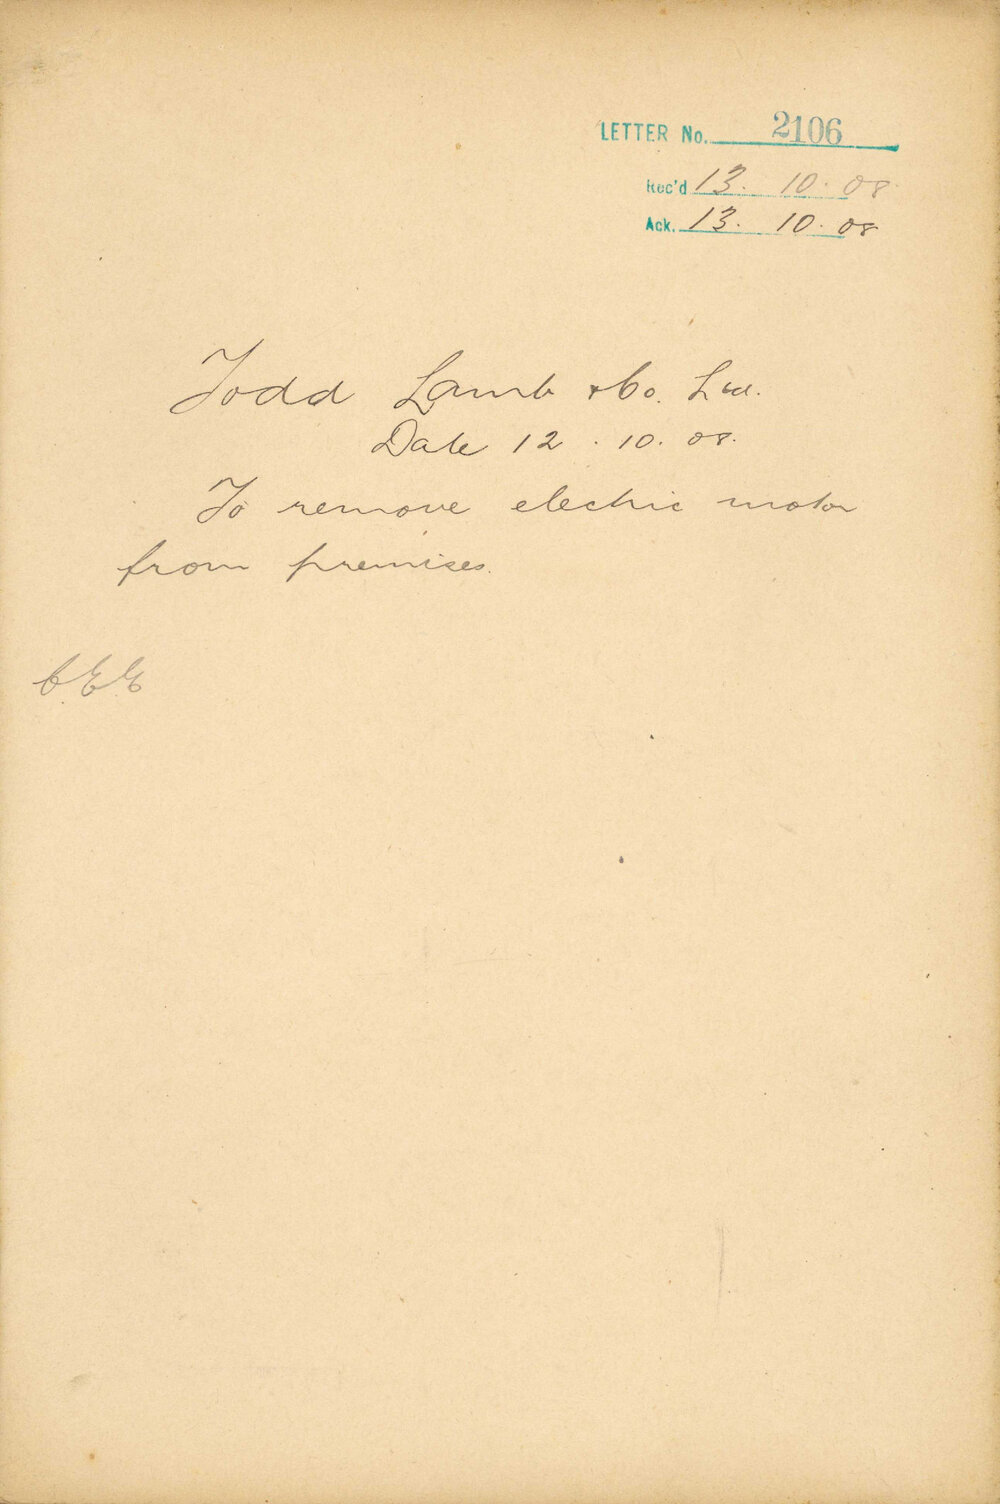 LETTER No. 2106
Rec'd 13. 10. 08
Ack. 13. 10. 08
Todd Lamb & Co. Ltd.
Date 12. 10. 08.
To remove electric motor
from premises.
CEE